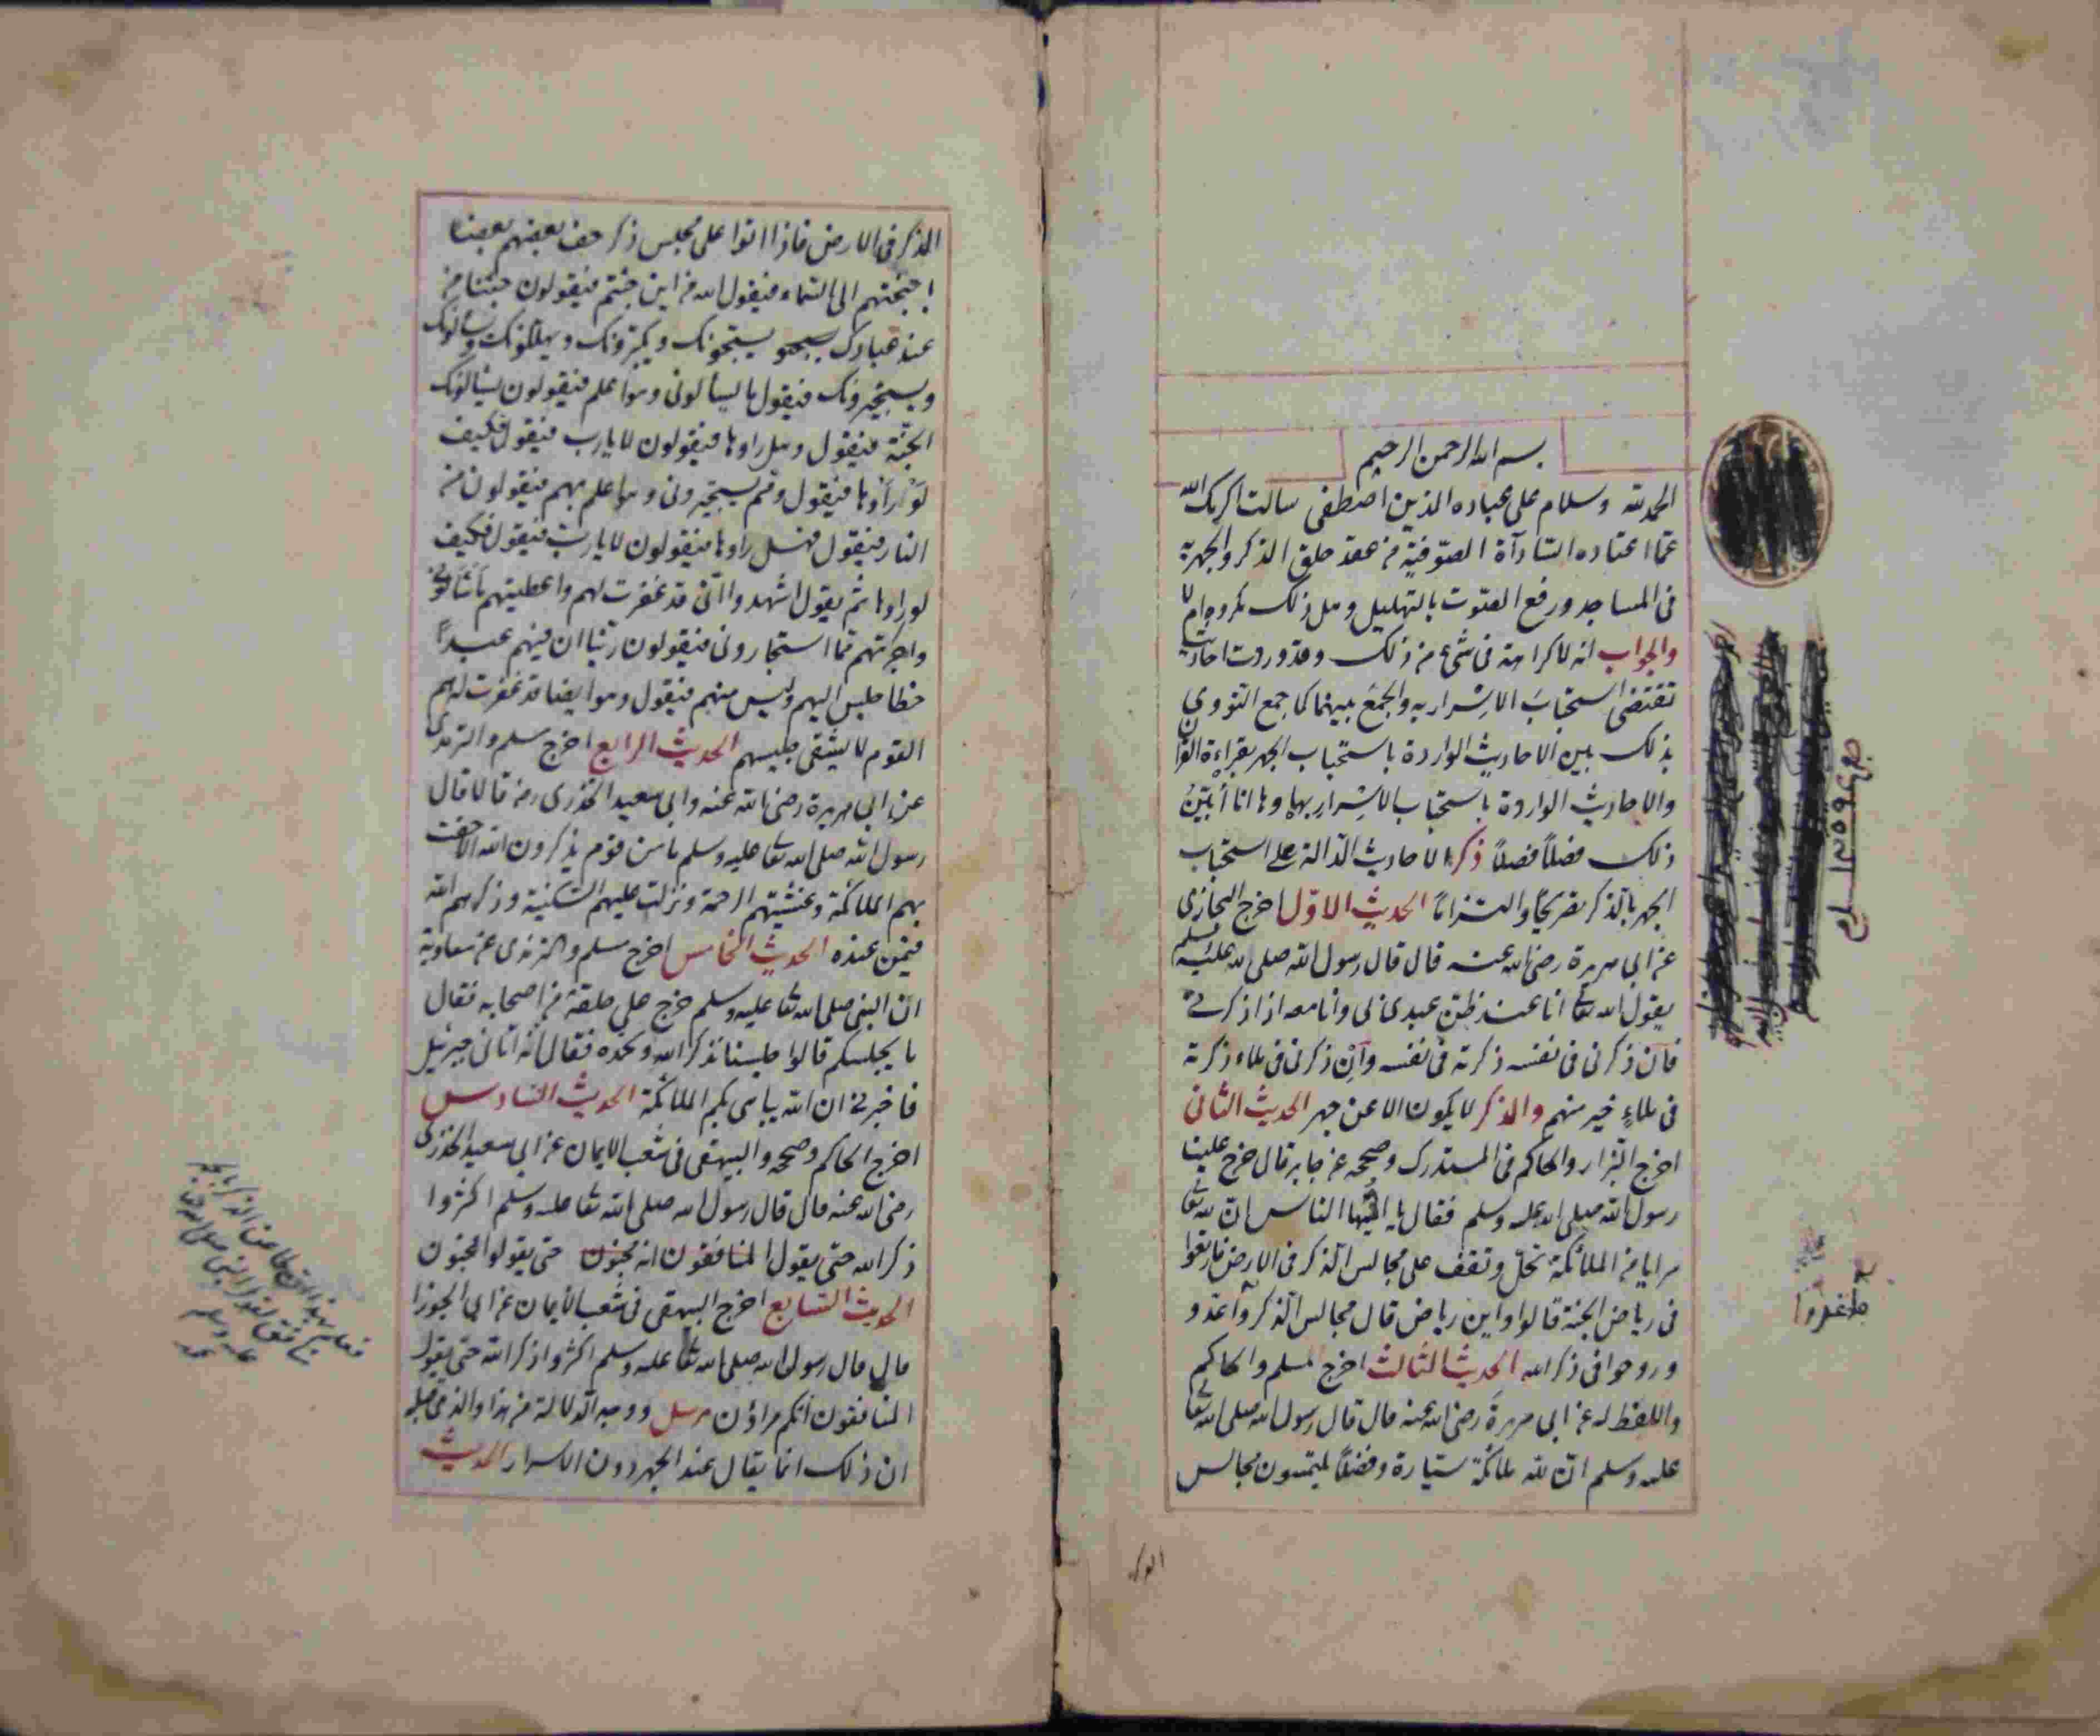 بسم الله الرحمن الرحيم
الحمد لله وسلام على عباده الذين اصطفى سالت اكرمك الله
عما اعتاده السادآة الصوفية من عقد حلق الذكر والجهر به
فى المساجد ورفع الصوت بالتهليل وهل ذلك مكروه ام لا
والجواب انه لا كراهة فى شىء من ذلك وقد وردت احاديث
تقتضى استحباب الاسرار به والجمع بينهما كما جمع النووى
بذلك بين الاحاديث الواردة باستحباب الجهر بقراءة القرآن
والاحاديث الواردة باستحباب الاسرار بها وها انا أبين
ذلك فصلاً فصلاً ذكر الاحاديث الدالة على استحباب
الجهر بالذكر تصريحًا والتزامًا الحديث الاول اخرج البخارى
عن ابى هريرة رضى الله عنه قال قال رسول الله صلى الله عليه وسلم
يقول الله تعا انا عند ظن عبدى بى وانا معه اذا ذكرنى
فان ذكرنى فى نفسه ذكرته فى نفسه وان ذكرنى فى ملاء ذكرته
فى ملاءٍ خير منهم والذكر لا يكون الا عن جهر الحديث الثانى
اخرج البزار والحاكم فى المستدرك وصححه عن جابر قال خرج علينا
رسول الله صلى الله عليه وسلم فقال يا ايها الناس ان لله تعا
سرايا من الملائكة تحل وتقف على مجالس الذكر فى الارض فارتعوا
فى رياض الجنة قالوا واين رياض قال مجالس الذكر واغدو
وروحوا فى ذكر الله الحديث الثالث اخرج المسلم والحاكم
واللفظ له عن ابى هريرة رضى الله عنه قال قال رسول الله صلى الله تعا
عليه وسلم ان لله ملائكة سيارة وفضلاً يلتمسون مجالس
الذكر فى الارض فاذا اتوا على مجلس ذكر حف بعضهم بعضا
باجنحتهم الى السماء فيقول الله من اين جئتم فيقولون جئنا من
عند عبادك يسبحونك ويكبرونك ويهللونك ويسألونك
ويستجيرونك فيقول ما يسألونى وهو اعلم فيقولون يسألونك
الجنة فيقول وهل راوها فيقولون لا يارب فيقول فكيف
لو رأوها فيقول ومم يستجيرونى وهو اعلم بهم فيقولون من
النار فيقول فهل راوها فيقولون لا يارب فيقول فكيف
لو راوها ثم يقول اشهدوا انى قد غفرت لهم واعطيتهم ما سألونى
واجرتهم مما استجارونى فيقولون ربنا ان فيهم عبداً
خطا جلس اليهم وليس منهم فيقول وهو ايضا قد غفرت له هم
القوم لا يشقى جليسهم الحديث الرابع اخرج مسلم والترمدى
عن ابى هريرة رضى الله عنه وابى سعيد الخذرى رضه قالا قال
رسول الله صلى الله تعا عليه وسلم ما من قوم يذكرون الله الا حفت
بهم الملائكة وغشيتهم الرحمة ونزلت عليهم السكينة وذكرهم الله
فيمن عنده الحديث الخامس اخرج مسلم والترمذى عن معاوية
ان النبى صلى الله تعا عليه وسلم خرج على حلقة من اصحابه فقال
ما يجلسكم قالوا جلسنا نذكر الله ونحمده فقال انه اتانى جبرئيل
فاخبرنى ان الله يباهى بكم الملائكة الحديث السادس
اخرج الحاكم وصححه والبيهقى فى شعب الايمان عن ابى سعيد الخذرى
رضى الله عنه قال قال رسول الله صلى الله تعا عليه وسلم اكثروا
ذكر الله حتى يقول المنافقون انه مجنون حتى يقولوا مجنون
الحديث السابع اخرج البيهقى فى شعب الايمان عن ابى الجوزا
قال قال رسول الله صلى الله تعا عليه وسلم اكثروا ذكر الله حتى يقول
المنافقون انكم مراؤن مرسل ووجه الدلالة من هذا والذى قبله
ان ذلك انما يقال عند الجهر دون الاسرار الحديث